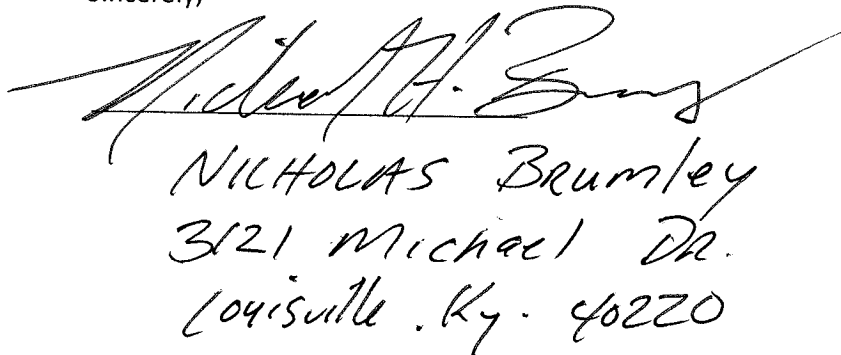 Sincerely,
NICHOLAS Brumley
3121 Michael DR.
Louisville . Ky. 40220